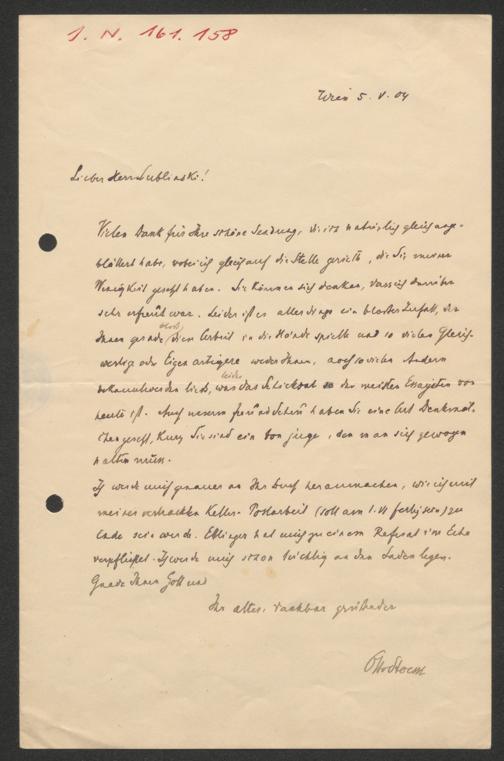 I. N. 161.158
Wien 5. V. 04
Lieber Herr Lublinski!
Vielen Dank für Ihre schöne Sendung, die ich natürlich gleich ange-
blättert habe, wobei ich gleich auf die Stelle geriet, die Sie meiner
Wenigkeit gesetzt haben. Sie können sich denken, dass ich darüber
sehr erfreut war. Leider ist es allerdings ein blosser Zufall, der
Ihnen gerade bloß diese Arbeit in die Hände spielte und so vieles Gleich-
wertige oder Eigenartigere weder Ihnen, noch so vielen Andern
bekannt werden liess, was leider das Schicksal der meisten Essayisten von
heute ist. Auch unserm freund Scheu haben Sie eine Art Denkmal-
chen gesetzt, Kurz Sie sind ein bon junge, dem man sich gewogen
halten muss.
Ich werde mich genauer an Ihr Buch heranmachen, wie ich mit
meiner vertrackten Keller-Postarbeit (soll am 1. VI fertig sein) zu
Ende sein werde. Ettlinger hat mich zu einem Referat im Echo
verpflichtet. Ich werde mich schon tüchtig an den Laden legen.
Gnade Ihnen Gott und
Ihr alter, dankbar grüßender
Otto Stoessl